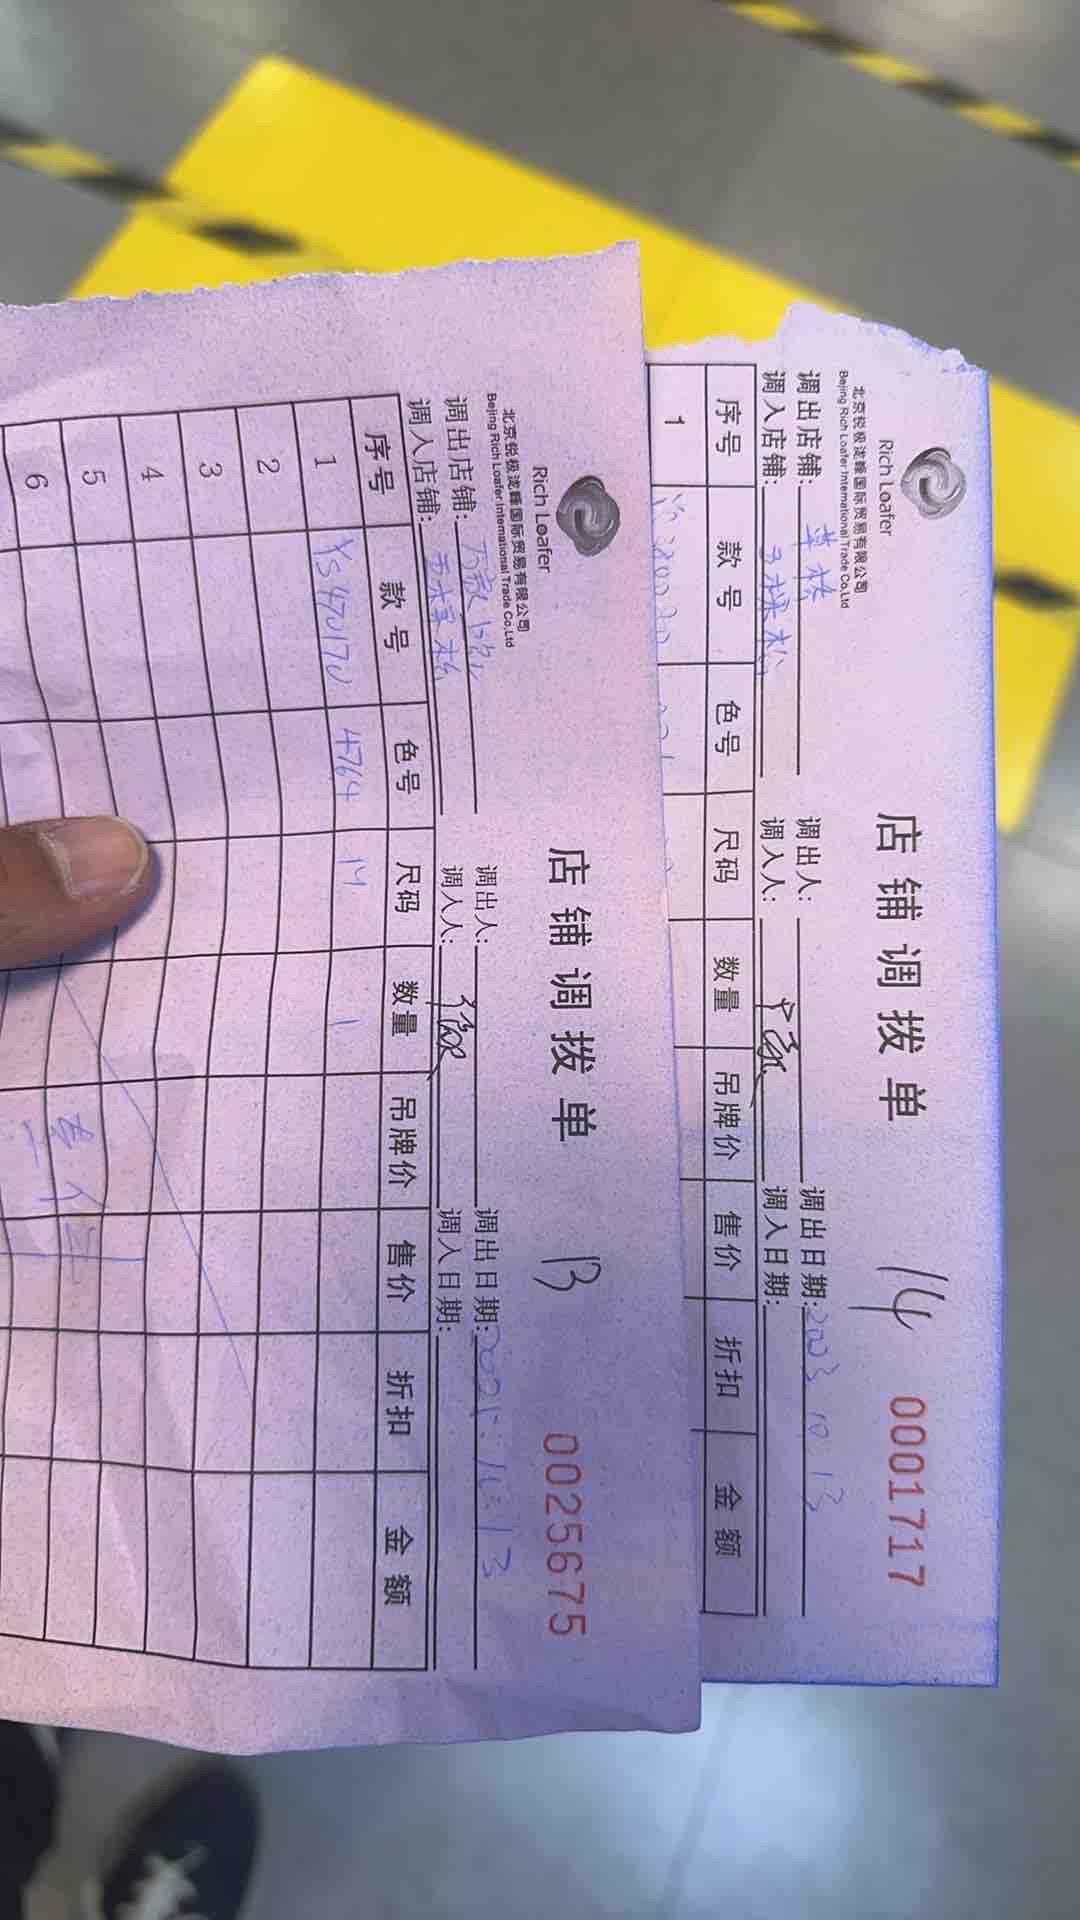 Rich Loafer
北京锐极泷峰国际贸易有限公司
Beijing Rich Loafer International Trade Co,Ltd
店铺调拨单
14
0001717
调出店铺: 草桥 调出人: 调出日期:2023 10 13
调入店铺: 调入人: 调入日期:
序号 款号 色号 尺码 数量 吊牌价 售价 折扣 金额
1
Rich Loafer
北京锐极泷峰国际贸易有限公司
Beijing Rich Loafer International Trade Co,Ltd
店铺调拨单
13
0025675
调出店铺: 调出人: 调出日期:
调入店铺: 调入人: 调入日期:
序号 款号 色号 尺码 数量 吊牌价 售价 折扣 金额
1 YS470170 4764 M 1
2
3
4
5
6